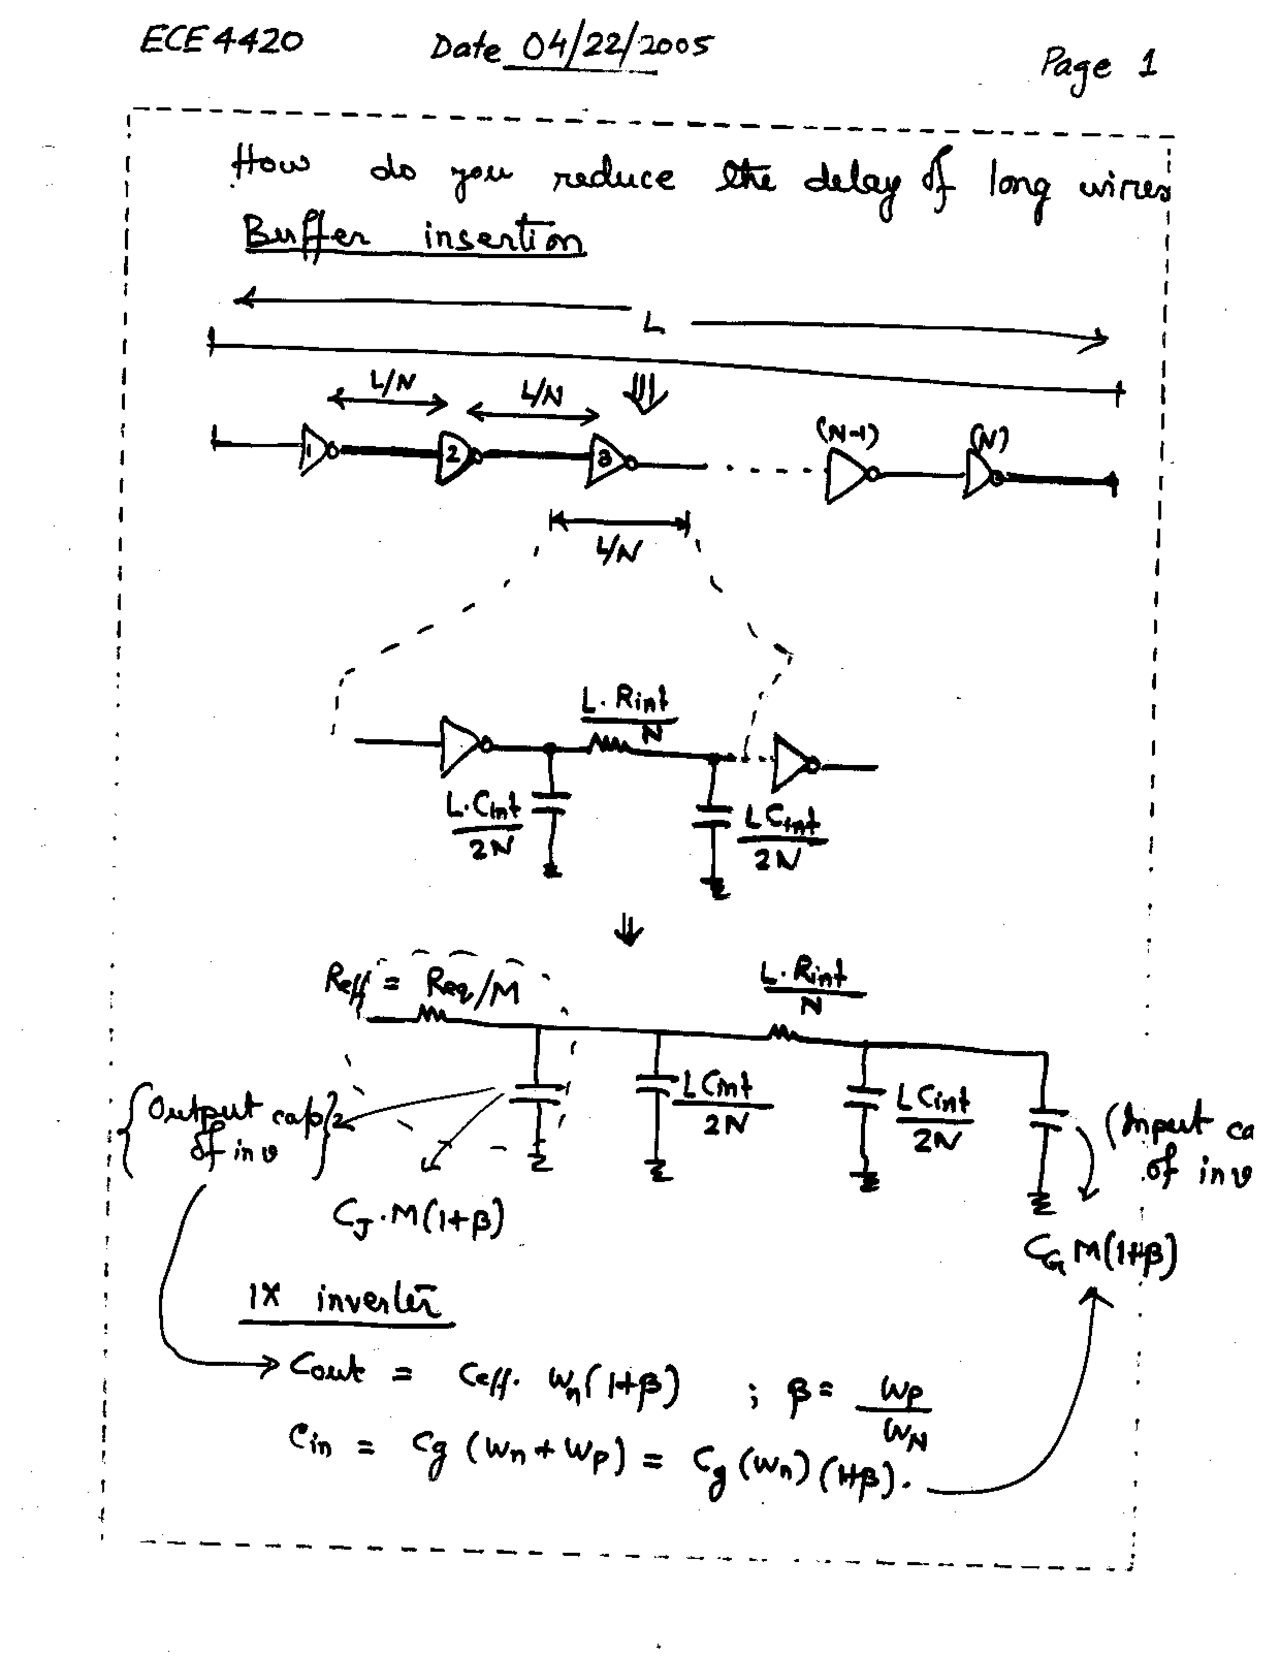 ECE 4420 Date 04/22/2005 Page 1
How do you reduce the delay of long wires
Buffer insertion
L
L/N L/N
1 2 3 (N-1) (N)
L/N
L. Rint / N
L. Cint / 2N L Cint / 2N
Reff = Req/M L. Rint / N
L Cint / 2N L Cint / 2N
{Output cap of inv} (Input ca of inv
CJ . M(1+β) CG M(1+β)
1X inverter
Cout = Ceff. Wn(1+β) ; β = WP / WN
Cin = Cg (Wn + Wp) = Cg (Wn) (1+β).